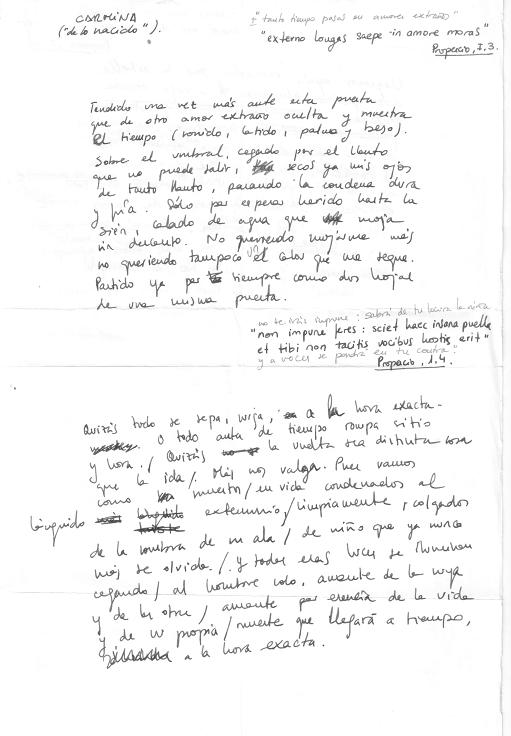 CAROLINA
("de lo nacido").
"tanto tiempo pasas en amores extraño"
"externo longas saepe in amore moras"
Propercio, I.3.
Tendido una vez más ante esta puerta
que de otro amor extraño oculta y muestra
el tiempo (sonido, latido, palma y beso).
Sobre el umbral, cegado por el llanto
que no puede salir, secos ya mis ojos
de tanto llanto, pasando la condena dura
y fría. Sólo por esperar herido hasta la
sien, calado de agua que moja
sin descanso. No queriendo mojarme más
no queriendo tampoco un el calor que me seque.
Partido ya por siempre como dos hojas
de una misma puerta.
no te irás impune: sabrá de tu locura la niña
"non impune feres: sciet haec insana puella
et tibi non tacitis vocibus hostis erit"
y a voces se pondrá en tu contra"
Propercio, 1.4.
Quizás todo se sepa, a la hora exacta.
O todo antes de tiempo rompa sitio
y hora. / Quizás la vuelta sea distinta cosa
que la ida /. Más nos valga. Pues vamos
como muertos / en vida condenados al
lánguido exterminio / limpiamente, colgados
de la sombra de un ala / de niño que ya nunca
más se olvida. / y todas esas luces se
cegando / al hombre solo, amante de la suya
y de las otras / amante por esencia de la vida
y de su propia / muerte que llegará a tiempo,
a la hora exacta.